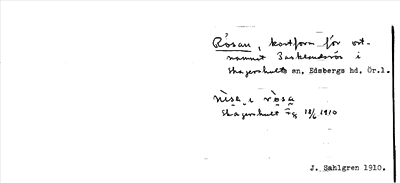 Rösan, kortform för ort-
namnet Backlundsrös i
Skagershults sn, Edsbergs hd, Ör.l.
i rösa
Skagershult 18/6 1910
J. Sahlgren 1910.